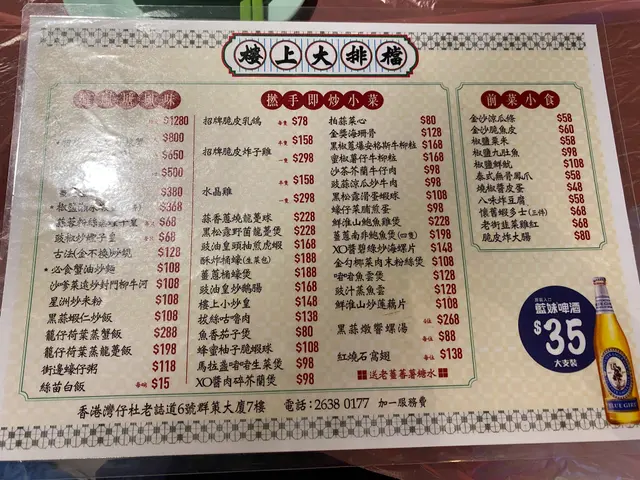 樓上大排檔
風味
$1280
$800
$650
$500
$380
$368
蒜蓉粉絲蒸聖子皇 $68
豉椒炒蟶子皇 $68
古法(金不換)炒蜆 $128
必食蟹油炒麵 $108
沙爹菜遠炒封門柳牛河 $108
星洲炒米粉 $108
黑蒜蝦仁炒飯 $108
籠仔荷葉蒸蟹飯 $288
籠仔荷葉蒸龍躉飯 $198
街邊蠔仔粥 $118
絲苗白飯 $15
撚手即炒小菜
招牌脆皮乳鴿 每隻 $78
招牌脆皮炸子雞 半隻 $158
一隻 $298
水晶雞 半隻 $158
一隻 $298
蒜香蔥燒龍躉球 $228
黑松露野菌龍躉球 $228
豉油皇頭抽煎虎蝦 $188
酥炸桶蠔(生菜包) $188
薑蔥桶蠔煲 $188
豉油皇炒鵝腸 $168
樓上小炒皇 $148
拔絲咕嚕肉 $138
魚香茄子煲 $80
蜂蜜柚子脆蝦球 $108
馬拉盞啫啫生菜煲 $98
XO醬肉碎芥蘭煲 $98
拍蒜菜心 $80
金獎海珊骨 $128
黑椒蔥爆安格斯牛柳粒 $168
蜜椒薯仔牛柳粒 $168
沙茶芥蘭牛仔肉 $98
豉蒜涼瓜炒牛肉 $98
黑松露滑蛋蝦球 $108
蠔仔菜脯煎蛋 $98
鮮淮山鮑魚雞煲 $228
薑蔥南非鮑魚煲(四隻) $198
XO醬碧綠炒海螺片 $148
金勾椰菜肉末粉絲煲 $98
啫啫魚雲煲 $128
豉汁蒸魚雲 $128
鮮淮山炒蓮藕片 $108
黑蒜燉響螺湯 4位 $268
每位 $88
紅燒石窩翅 每位 $138
送老薑番薯糖水
前菜小食
金沙涼瓜條 $58
金沙脆魚皮 $60
椒鹽粟米 $58
椒鹽九肚魚 $98
椒鹽鮮魷 $108
泰式無骨鳳爪 $58
燒椒醬皮蛋 $48
八味炸豆腐 $58
懷舊蝦多士(三件) $68
老街韭菜雞紅 $68
脆皮炸大腸 $80
藍妹啤酒
$35
大支裝
BLUE GIRL
香港灣仔杜老誌道6號群策大廈7樓 電話：2638 0177 加一服務費